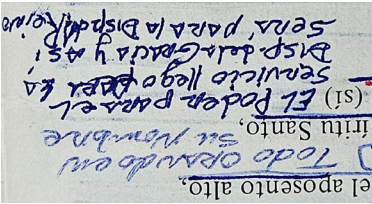 el aposento alto,
Todo orando en
su Nombre
íritu Santo,
(sí) EL Poder para EL
Servicio llego para LA
Disp. dela Gracia y Asi
Será para la Disp del Reino